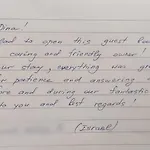 Dina!
to open this guest
caring and friendly owner!
our stay, everything was
patience and answering
and during our fantastic
to you and Best regards!
(Israel)